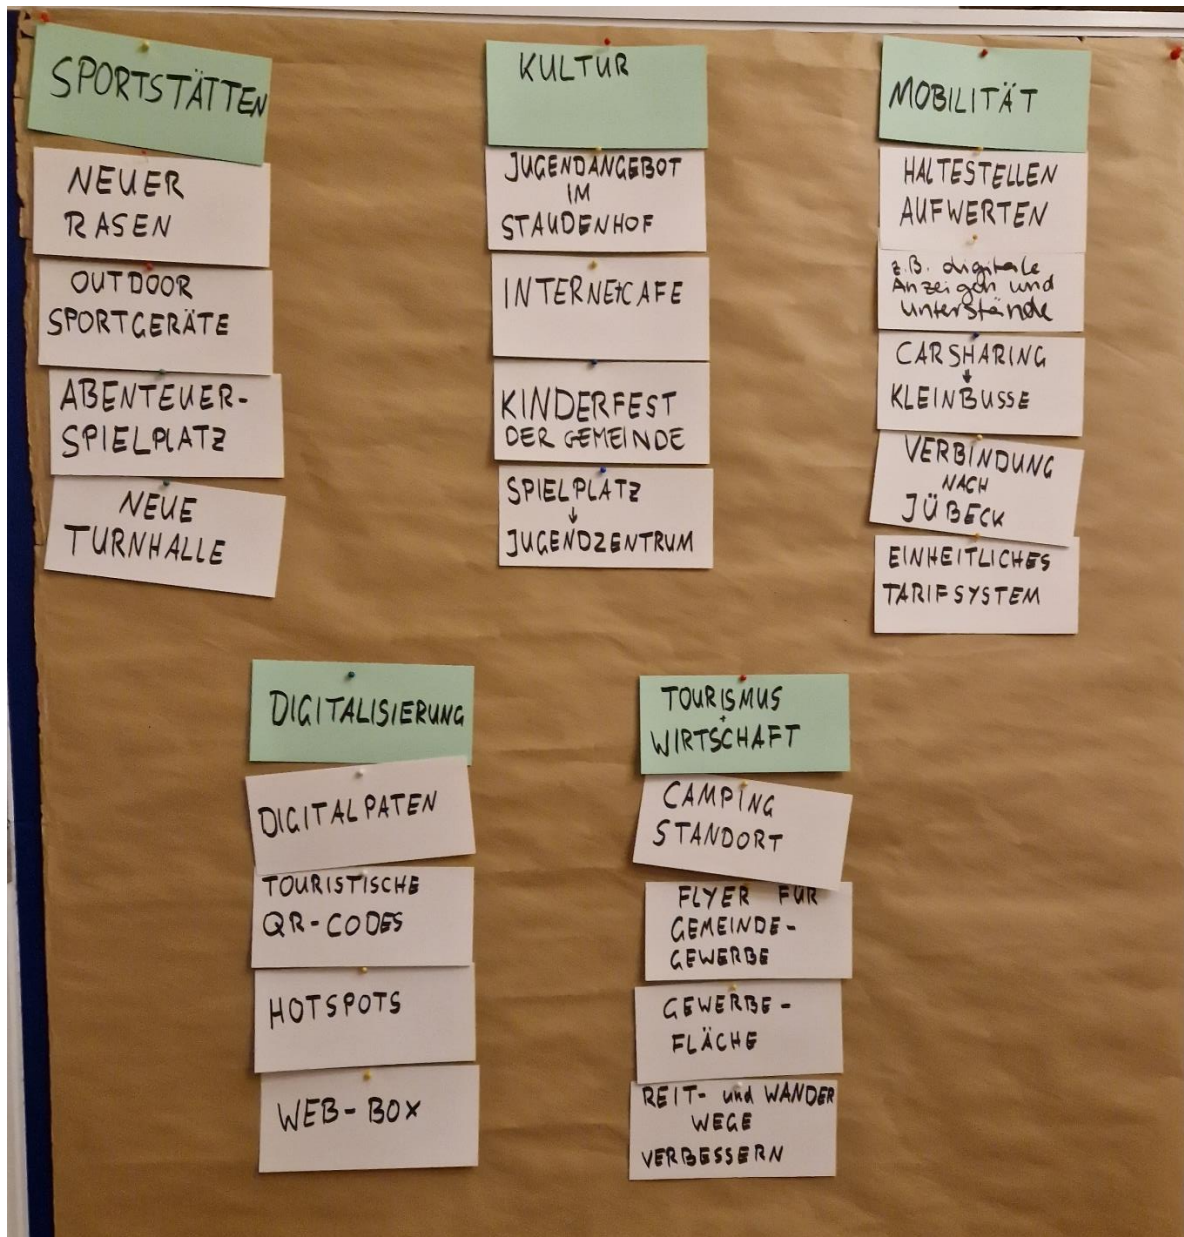 SPORTSTÄTTEN
NEUER
RASEN
OUTDOOR
SPORTGERÄTE
ABENTEUER-
SPIELPLATZ
NEUE
TURNHALLE
KULTUR
JUGENDANGEBOT
IM
STAUDENHOF
INTERNETCAFE
KINDERFEST
DER GEMEINDE
SPIELPLATZ
↓
JUGENDZENTRUM
MOBILITÄT
HALTESTELLEN
AUFWERTEN
z.B. digitale
Anzeigen und
Unterstände
CARSHARING
↓
KLEINBUSSE
VERBINDUNG
NACH
JÜBECK
EINHEITLICHES
TARIFSYSTEM
DIGITALISIERUNG
DIGITALPATEN
TOURISTISCHE
QR-CODES
HOTSPOTS
WEB-BOX
TOURISMUS
+
WIRTSCHAFT
CAMPING
STANDORT
FLYER FÜR
GEMEINDE-
GEWERBE
GEWERBE-
FLÄCHE
REIT- und WANDER
WEGE
VERBESSERN